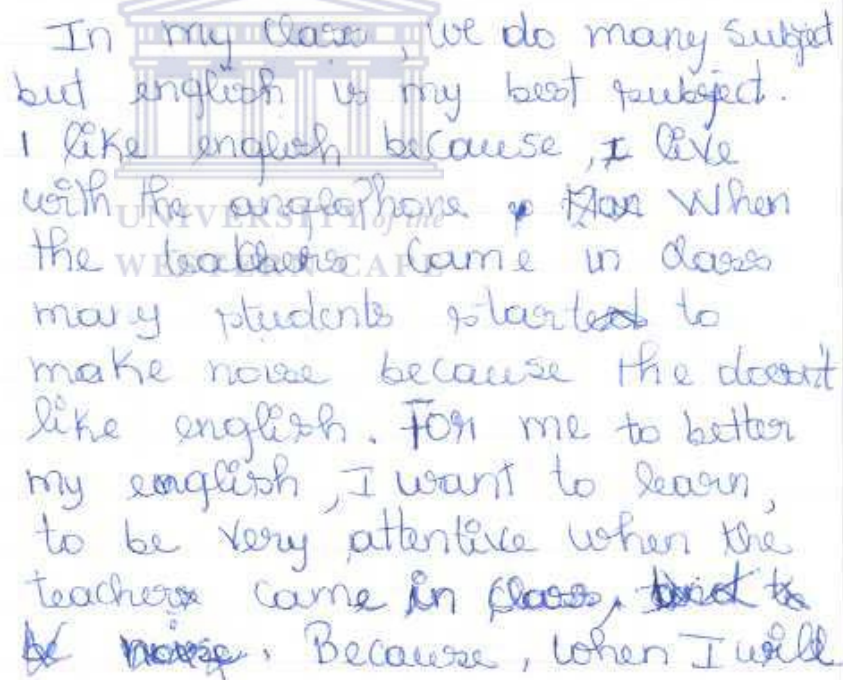 In my class, we do many subject
but english is my best subject.
I like english because, I live
with the anglophone. When
the teachers came in class
many students started to
make noise because the doesn't
like english. For me to better
my english, I want to learn,
to be very attentive when the
teachers came in class,
. Because, when I will
UNIVERSITY of the
WESTERN CAPE